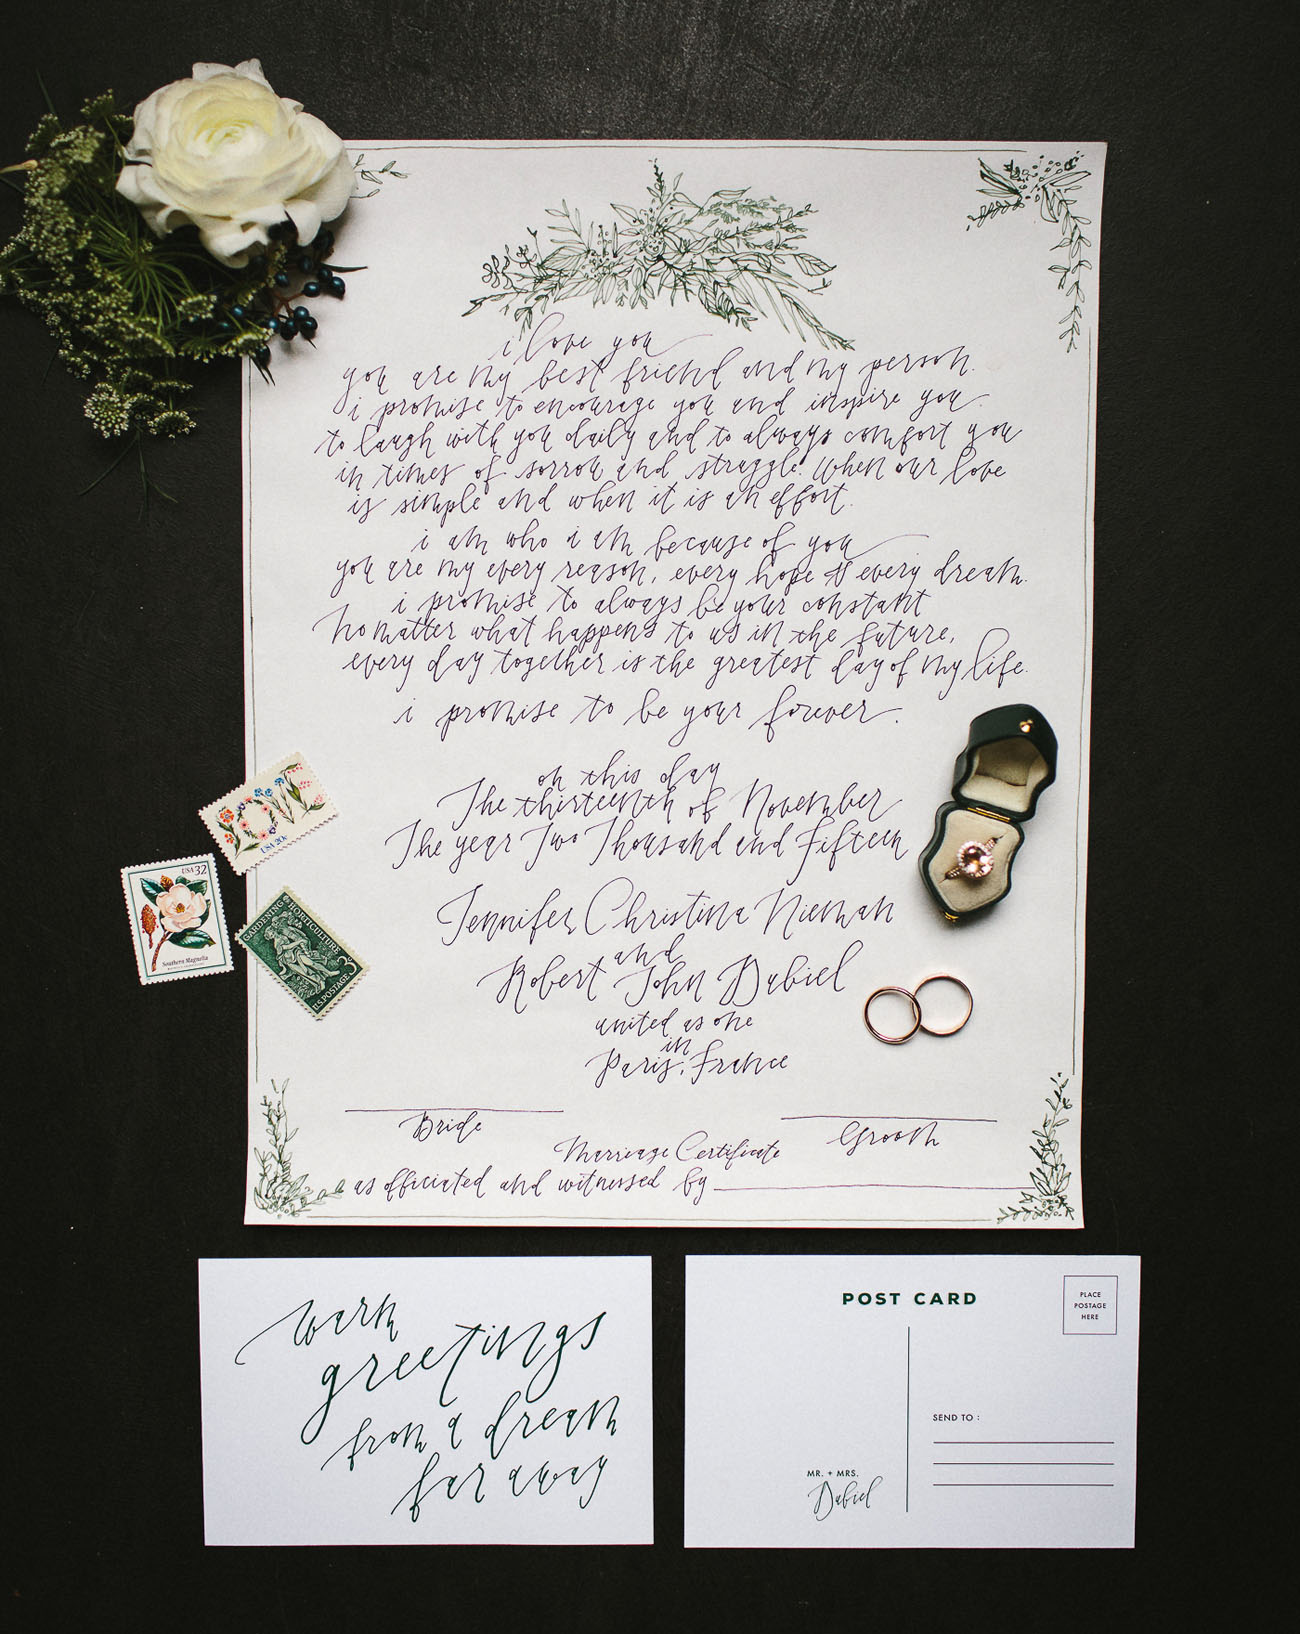 i love you
you are my best friend and my person.
i promise to encourage you and inspire you.
to laugh with you daily and to always comfort you
in times of sorrow and struggle. when our love
is simple and when it is an effort.
i am who i am because of you
you are my every reason, every hope & every dream.
i promise to always be your constant
no matter what happens to us in the future,
every day together is the greatest day of my life.
i promise to be your forever.
on this day
The thirteenth of November
The year Two Thousand and Fifteen
Jennifer Christina Nieman
and
Robert John Dabiel
united as one
in
Paris, France
Bride
Groom
Marriage Certificate
as officiated and witnessed by
LOVE
USA 20c
USA 32
Southern Magnolia
GARDENING HORTICULTURE
3c
U.S. POSTAGE
warm
greetings
from a dream
far away
POST CARD
PLACE
POSTAGE
HERE
SEND TO :
MR. + MRS.
Dabiel